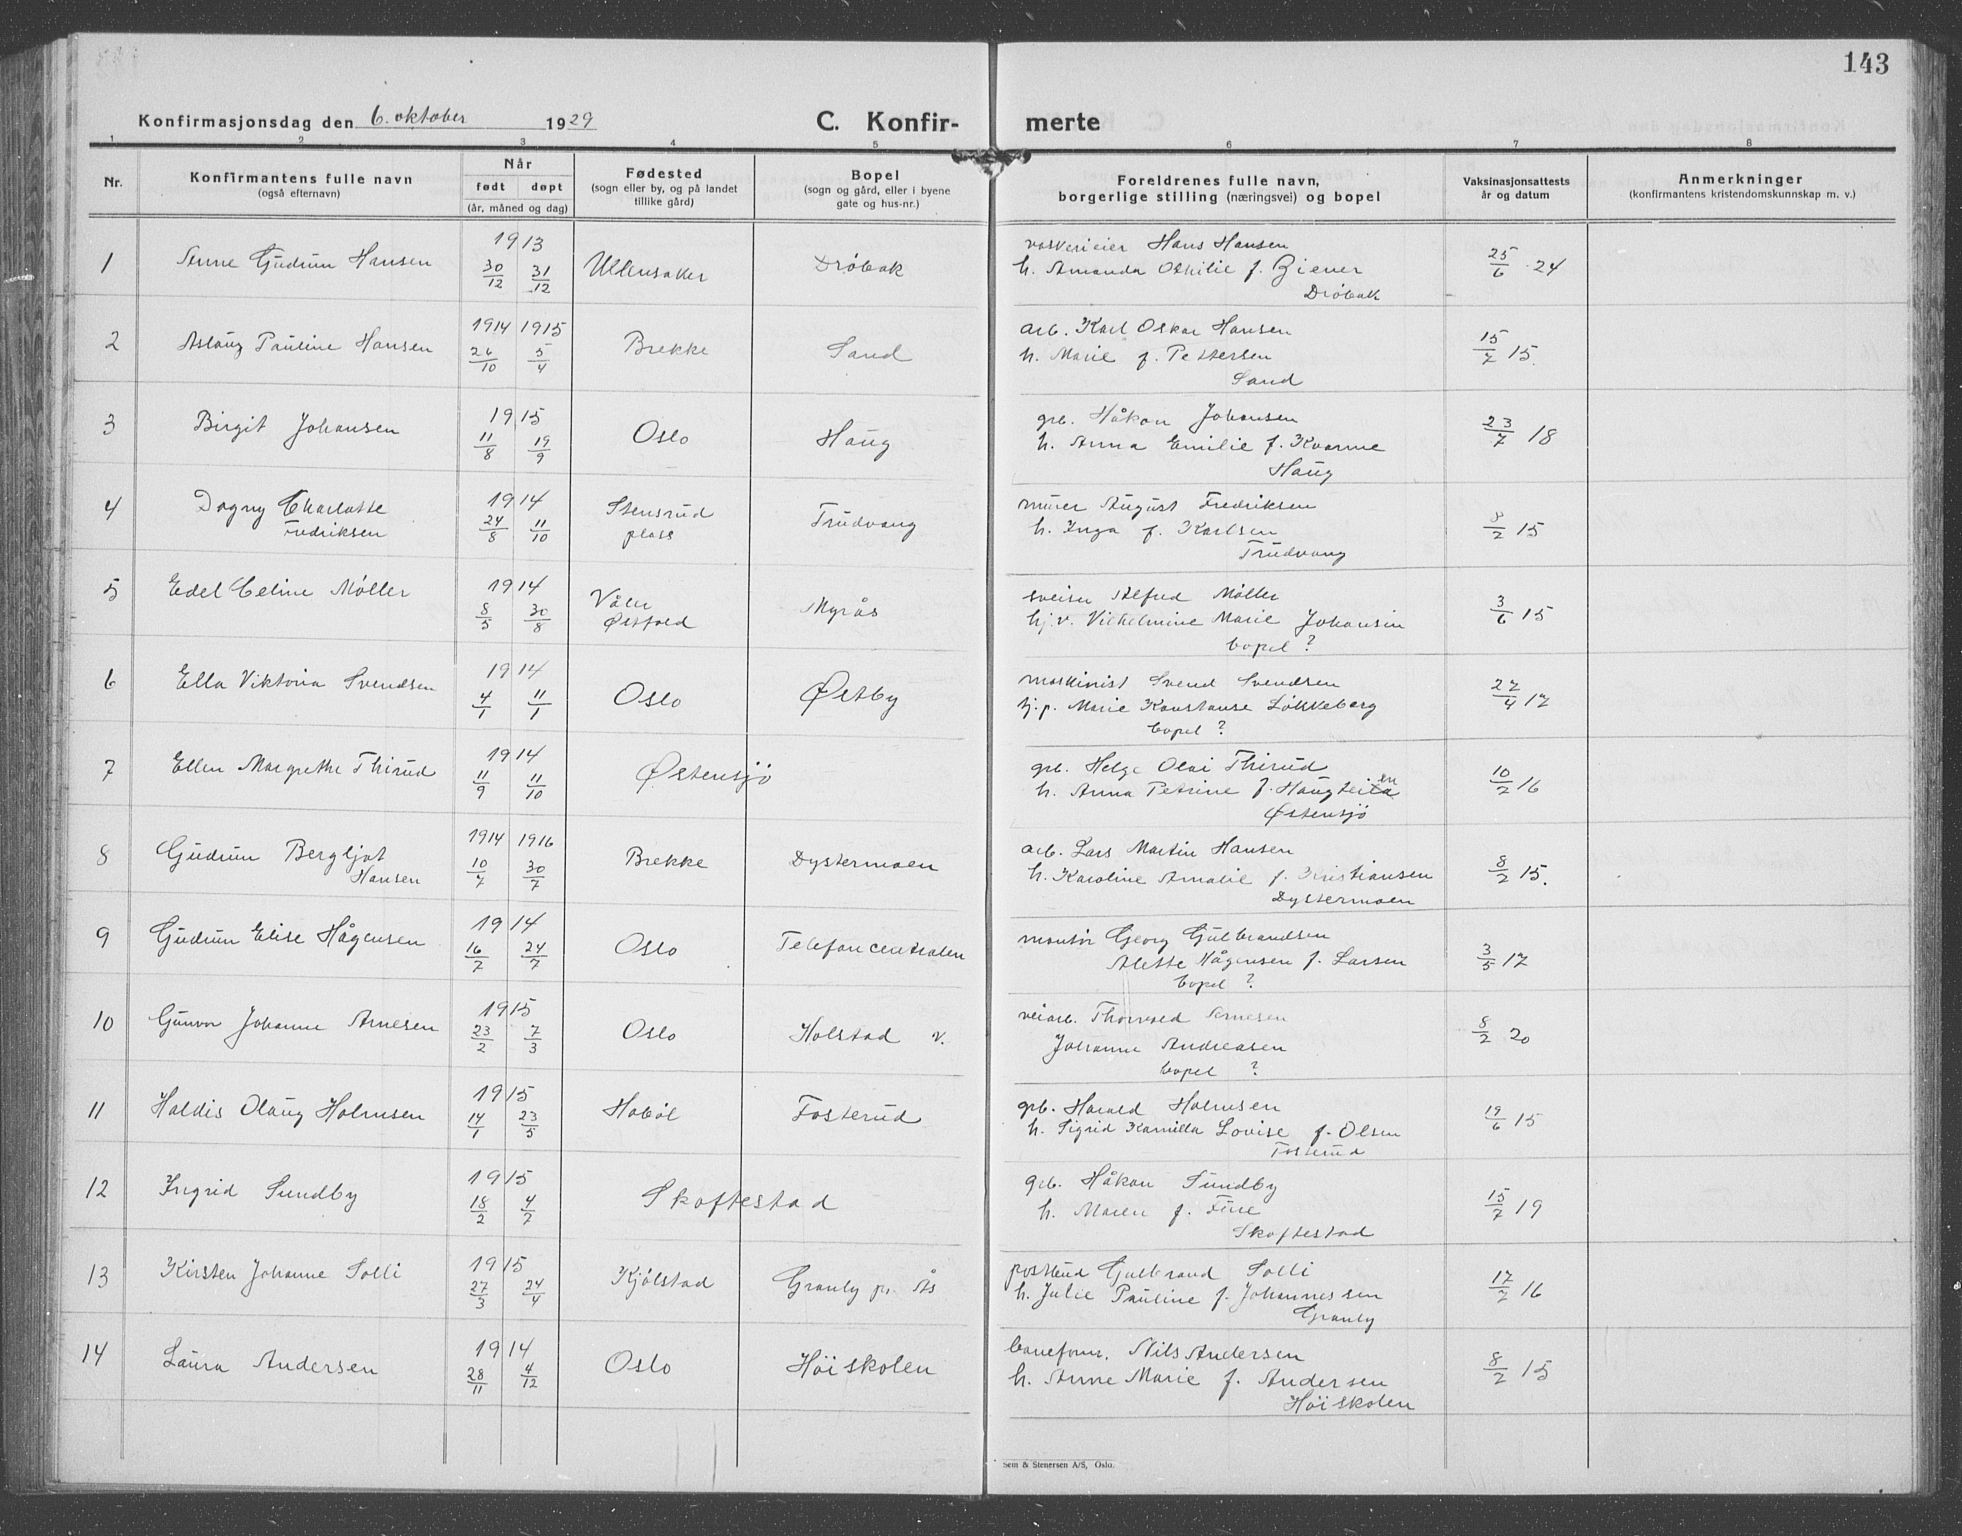 143
Konfirmasjonsdag den 6. oktober 1929
C. Konfir- merte
1 2 3 4 5 6 7 8
Nr.
Konfirmantens fulle navn
(også efternavn)
Når
født døpt
(år, måned og dag)
Fødested
(sogn eller by, og på landet
tillike gård)
Bopel
(sogn og gård, eller i byene
gate og hus-nr.)
Foreldrenes fulle navn,
borgerlige stilling (næringsvei) og bopel
Vaksinasjonsattests
år og datum
Anmerkninger
(konfirmantens kristendomskunnskap m. v.)
1 Anne Gudrun Hansen 1913 30/12 31/12 Ullensaker Drøbak
vaskerieier Hans Hansen
h. Amanda Othilie f. Ziener
Drøbak
25/6 24
2 Aslaug Pauline Hansen 1914 1915 26/10 5/4 Brekke Sand
arb. Karl Oskar Hansen
h. Marie f. Pettersen
Sand
15/7 15.
3 Birgit Johansen 1915 11/8 19/9 Oslo Haug
grb. Håkon Johansen
h. Anna Emilie f. Kvarme
Haug
23/7 18
4 Dagny Charlotte
Fredriksen
1914 24/8 11/10 Stensrud
plass
Trudvang
murer August Fredriksen
h. Inga f. Karlsen
Trudvang
8/2 15
5 Edel Celine Møller 1914 8/5 30/8 Våler
Østfold
Myrås
sveiser Alfred Møller
hj.v. Vilhelmine Marie Johansen
bopel ?
3/6 15
6 Ella Viktoria Svendsen 1914 4/1 11/1 Oslo Østby
maskinist Svend Svendsen
tj.p. Marie Konstanse Løkkeberg
bopel ?
27/4 17
7 Ellen Margrethe Thirud 1914 11/9 11/10 Østensjø
grb. Helge Olai Thirud
h. Anna Petrine f. Haugteien
Østensjø
10/2 16
8 Gudrun Bergljot
Hansen
1914 1916 10/7 30/7 Brekke Dystermoen
arb. Lars Martin Hansen
h. Karoline Amalie f. Kristiansen
Dystermoen
8/2 15.
9 Gudrun Elise Hågensen 1914 16/7 24/7 Oslo Telefoncentralen
montør Georg Gulbrandsen
Alette Hågensen f. Larsen
bopel ?
3/5 17
10 Gunvor Johanne Arnesen 1915 23/2 7/3 Oslo Holstad v.
veiarb. Thorvald Arnesen
Johanne Andreasen
bopel ?
8/2 20
11 Haldis Olaug Holmsen 1915 14/1 23/5 Hobøl Fosterud
grb. Harald Holmsen
h. Sigrid Kamilla Lovise f. Olsen
Fosterud
19/6 15
12 Ingrid Sundby 1915 18/2 4/7 Skoftestad
grb. Håkon Sundby
h. Maren f. Five
Skoftestad
15/7 19
13 Kirsten Johanne Solli 1915 27/3 24/4 Kjølstad Granly pr. Ås
postbud Gulbrand Solli
h. Julie Pauline f. Johannessen
Granly
17/7 16
14 Laura Andersen 1914 28/11 4/12 Oslo Höiskolen
baneform. Nils Andersen
h. Anne Marie f. Andersen
Höiskolen
8/2 15
Sem & Stenersen A/S, Oslo.